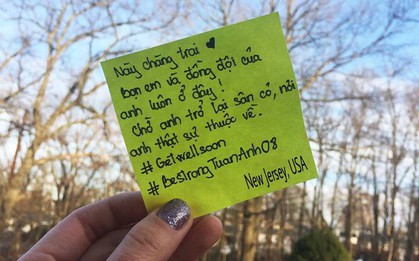 Này chàng trai ♥
Bọn em và đồng đội của
anh luôn ở đây!
Chờ anh trở lại sân cỏ, nơi
anh thật sự thuộc về.
#Getwellsoon
#BestrongTuanAnh08
New Jersey, USA